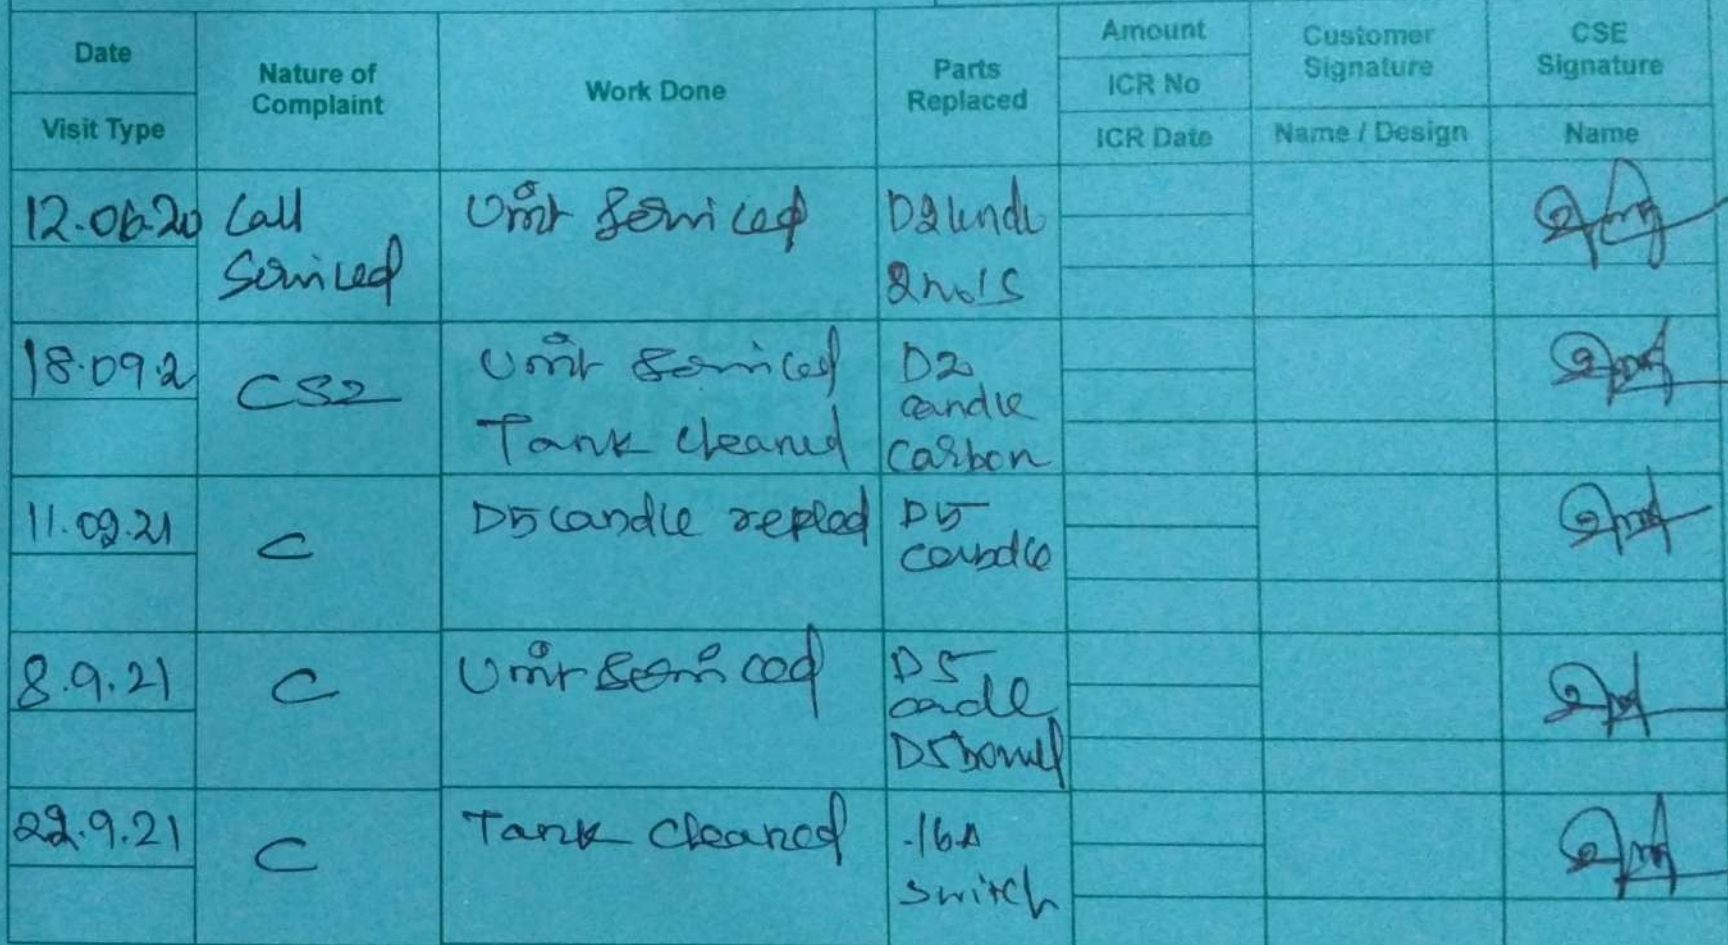 Date
Visit Type
Nature of
Complaint
Work Done
Parts
Replaced
Amount
ICR No
ICR Date
Customer
Signature
Name / Design
CSE
Signature
Name
12.06.20
Call
Serviced
Unit Serviced
D2
2no's
18.09.2
CS2
Unit Serviced
Tank cleaned
D2
candle
Carbon
11.09.21
C
D5 candle
D5
8.9.21
C
Unit Serviced
D5
D5
22.9.21
C
Tank Cleaned
16A
switch